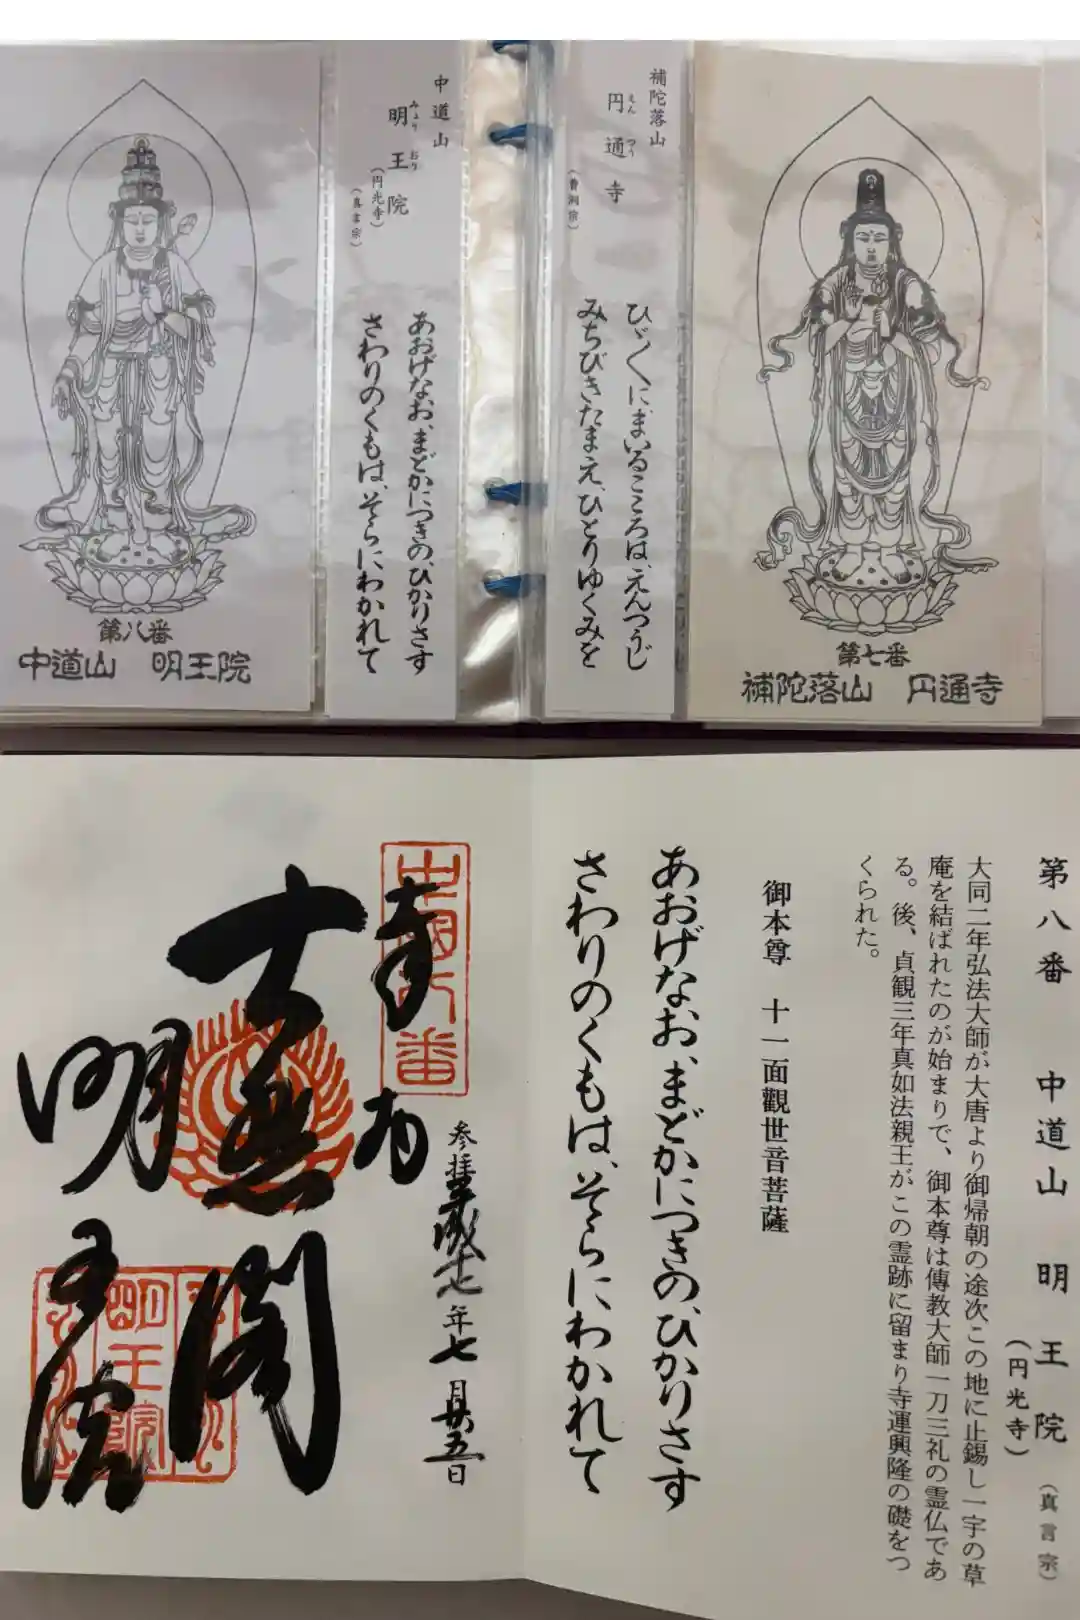 補陀落山
円通寺
えん つう
(曹洞宗)
ひゞくにまいるこころは、えんつうじ
みちびきたまえ、ひとりゆくみを
第七番
補陀落山 円通寺
中道山
明王院
みょう おう
(円光寺)
(真言宗)
あおげなお、まどかにつきの、ひかりさす
さわりのくもは、そらにわかれて
第八番
中道山 明王院
第八番 中道山 明王院
(円光寺)
(真言宗)
大同二年弘法大師が大唐より御帰朝の途次この地に止錫し一宇の草
庵を結ばれたのが始まりで、御本尊は傳教大師一刀三礼の霊仏であ
る。後、貞観三年真如法親王がこの霊跡に留まり寺運興隆の礎をつ
くられた。
御本尊 十一面觀世音菩薩
あおげなお、まどかにつきの、ひかりさす
さわりのくもは、そらにわかれて
参拝平成十七年七月廿五日
奉
中国八番
大悲閣
明王院
明王院